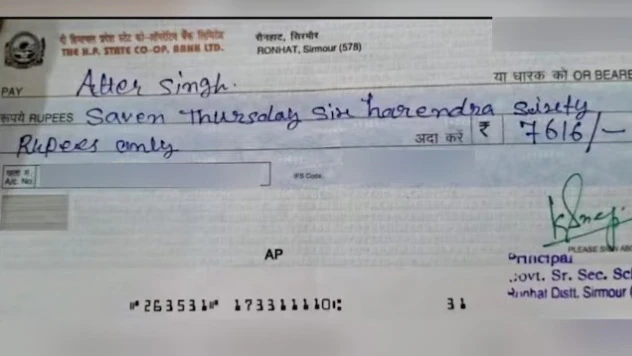 दी हिमाचल प्रदेश स्टेट को-ऑपरेटिव बैंक लिमिटेड
THE H.P. STATE CO-OP. BANK LTD.
रोनहाट, सिरमौर
RONHAT, Sirmour (578)
PAY Atter Singh. या धारक को OR BEARE
रूपये RUPEES Saven Thursday Six harendra Sixty
Rupees only अदा करें ₹ 7616/-
खाता सं.
A/c. No.
IFS Code
PLEASE SIGN AB
AP
Principal
Govt. Sr. Sec. Sc
Ronhat Distt. Sirmour (
⑈263531⑈ 173311110⑆ 31